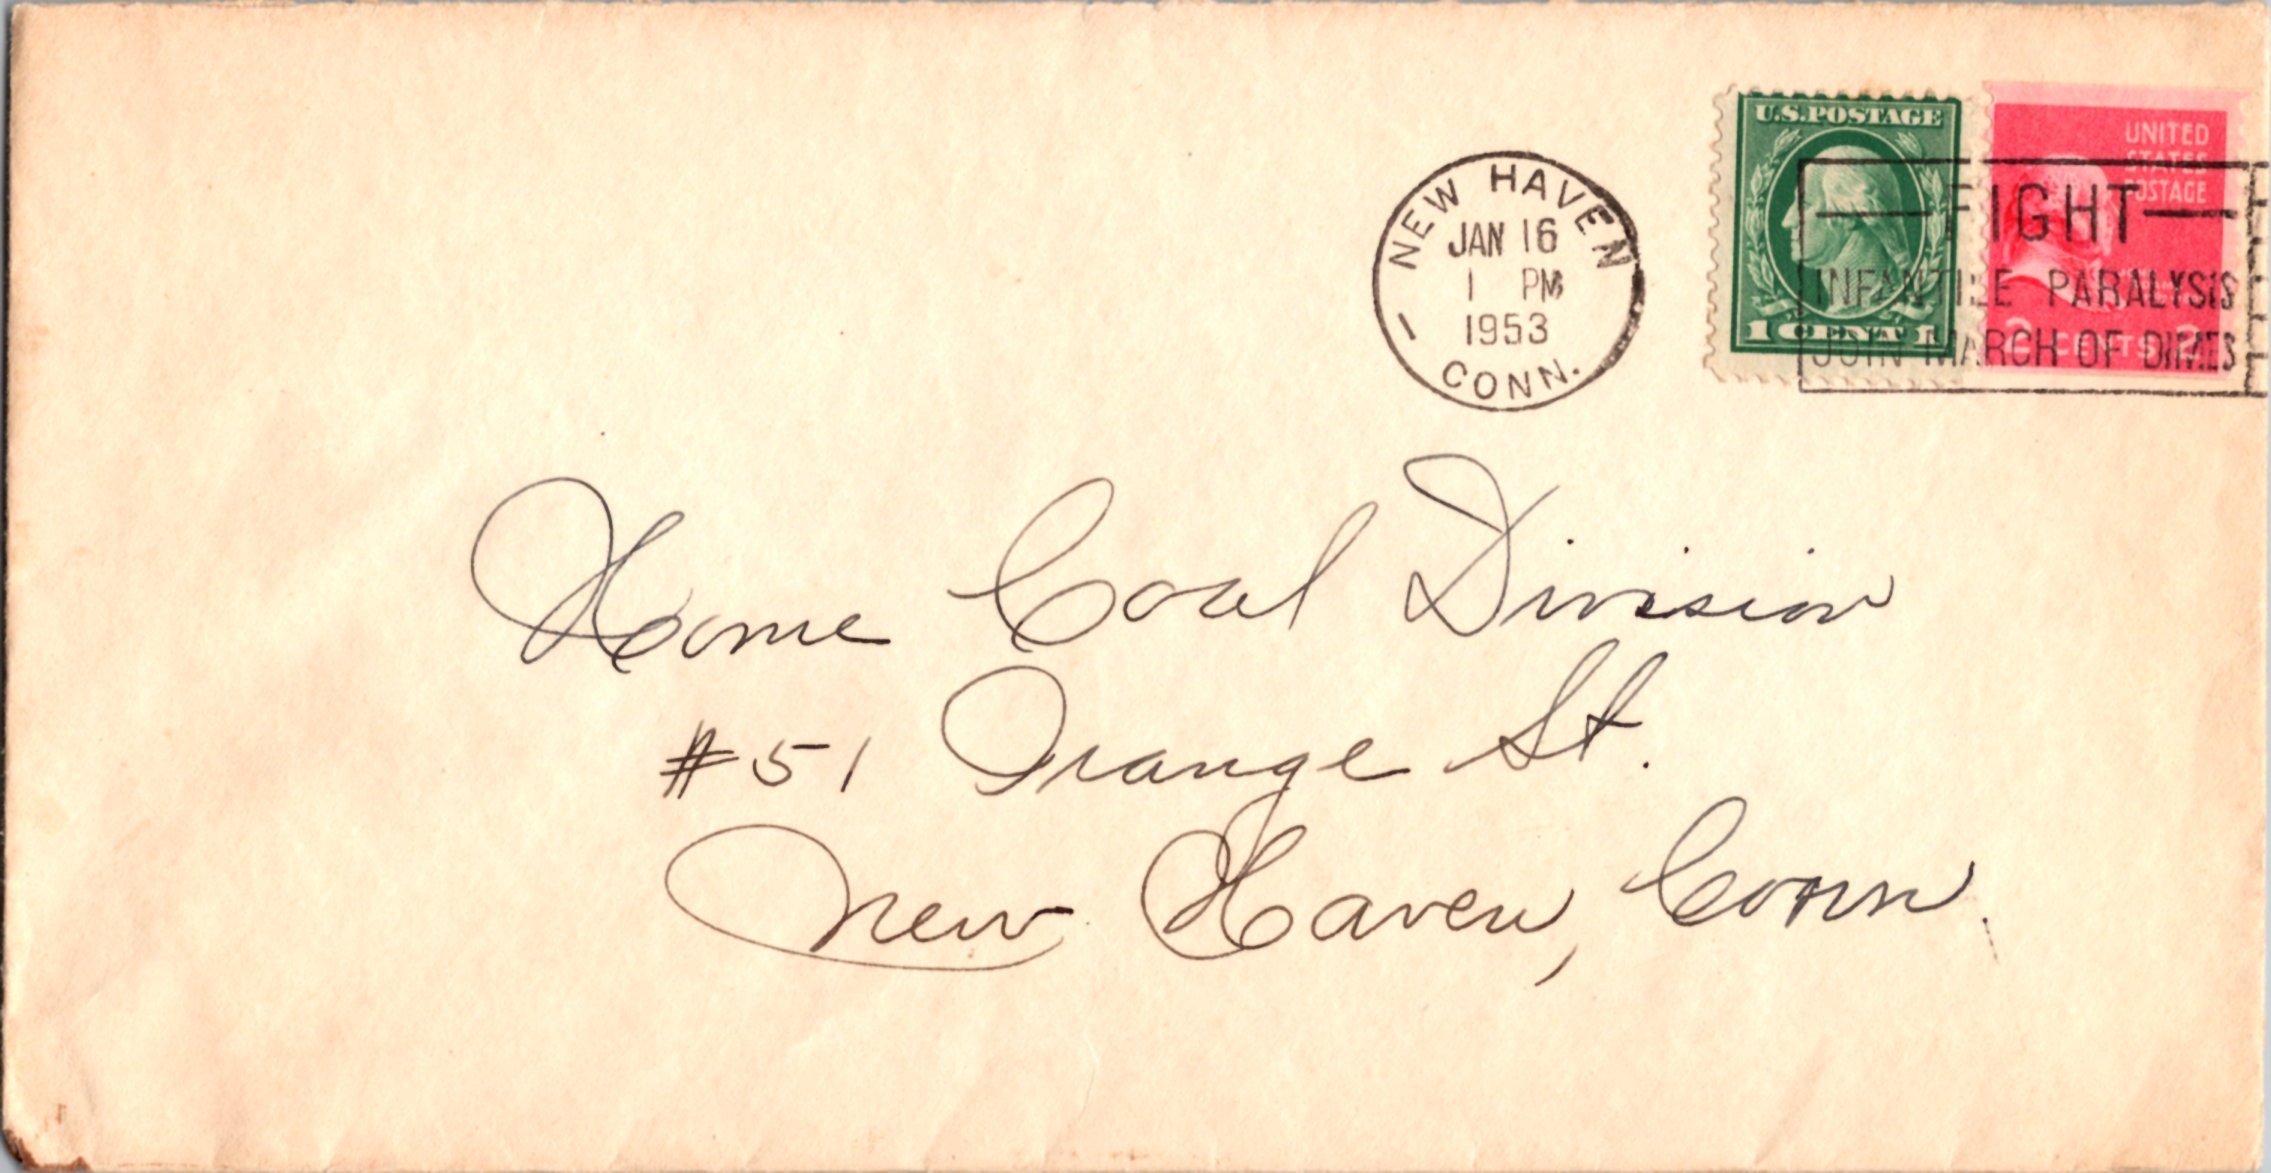 NEW HAVEN
JAN 16
1 PM
1953
1
CONN.
U.S.POSTAGE
1 CENT 1
UNITED
STATES
POSTAGE
2 CENTS 2
FIGHT
INFANTILE PARALYSIS
JOIN MARCH OF DIMES
Home Coal Division
#51 Orange St.
New Haven, Conn.